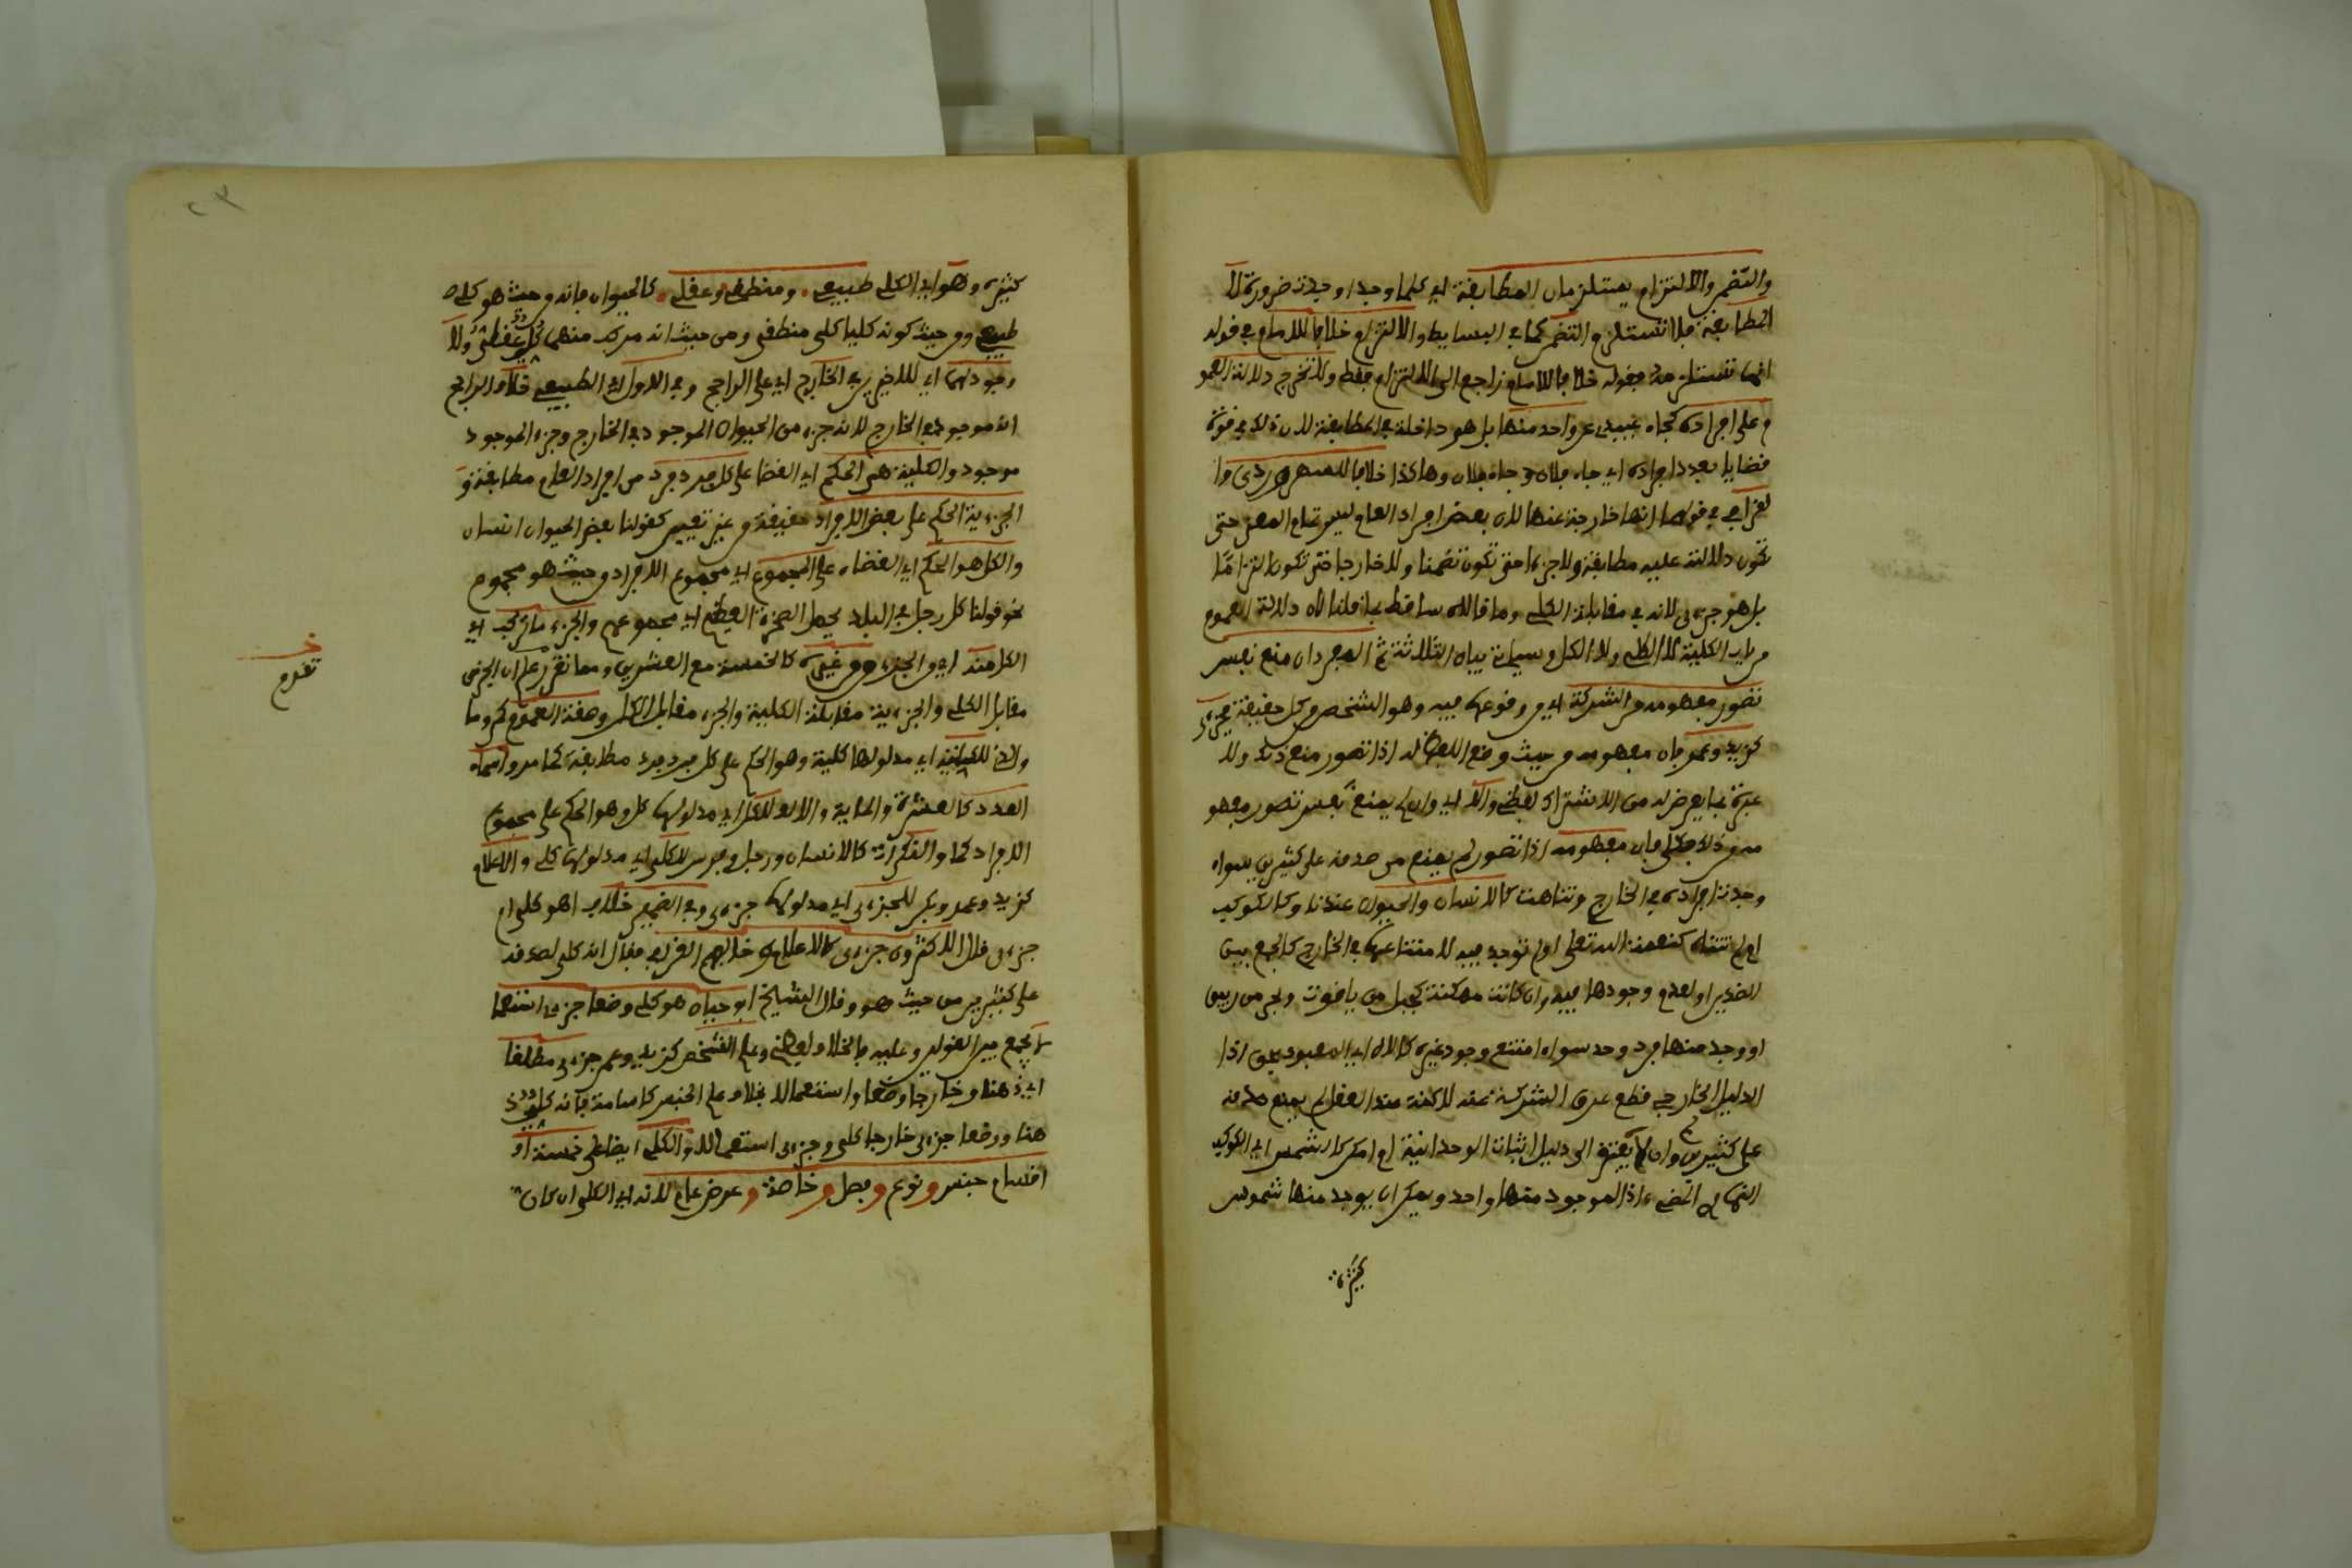 والتضمن والالتزام يستلزمان المطابقة اي كلما وجدا وجدت ضرورة لا
المطابقة فلا تستلزم التضمن كما في البسايط والالتزام خلافا للامام في قوله
انها تستلزمه فقوله خلافا للامام راجع الى الالتزام فقط ولا تخرج دلالة العمو
م على افراده كجاء عبيدي عن واحد منها بل هو داخلة في المطابقة لان ذلك في قوة
قضايا بعدد افراده اي جاء فلان و جاء فلان وهاكذا خلافا للسهروردي وا
لقرافي في قولهما انها خارجة عنها لان بعض افراد العام ليس تمام المعنى حتى
تكون دلالته عليه مطابقة ولا جزءا حتى تكون تضمنا ولا خارجا حتى تكون التزاما
بل هو جزءي لانه في مقابلة الكلي وما قالاه ساقط بما قلنا لان دلالة العموم
من باب الكلية لا الكلي ولا الكل وسيأتي بيان الثلاثة ثم المفرد ان منع نفس
تصور مفهومه من الشركة اي من وقوعها فيه وهو الشخص من كل حقيقة فجزءي
كزيد وعمرو فان مفهومه من حيث وضع اللفظ له اذا تصور منع ذلك ولا
عبرة بما يعرض له من الاشتراك لفظي والا اي وان لم يمنع نفس تصور مفهو
مه من ذلك فكلي فان مفهومه اذا تصور لم يمنع من صدقه على كثيرين سواء
وجدت افراده في الخارج وتناهت كالانسان والحيوان عندنا وكالكوكب
ام لم تتناه كنعمة الله تعلى اولم توجد فيه لامتناعها في الخارج كالجمع بين
الضدين او لعدم وجودها فيه وان كانت ممكنة كجبل من ياقوت وبحر من زيبق
او وجد منها فرد وحد سواء امتنع وجود غيره كالاله اي المعبود بحق اذا
الدليل الخارجي قطع عرق الشركة عنه لاكنه عند العقل لم يمنع صدقه
على كثيرين وان لم يفتقر الى دليل اثبات الوحدانية ام امكن كالشمس اي الكوكب
النهاري المضيء اذ الموجود منها واحد ويمكن ان يوجد منها شموس
كثيرة
كثيرة وهو اي الكلي طبيعي ومنطقي وعقلي كالحيوان فانه من حيث هو كلي
طبيعي ومن حيث كونه كليا كلي منطقي ومن حيث انه مركب منهما كلي عقلي ولا
وجود لهما اي للاخيرين في الخارج اي على الراجح وفي الاول اي الطبيعي خلاف الراجح
انه موجود في الخارج لانه جزء من الحيوان الموجود في الخارج وجزء الموجود
موجود والكلية هي الحكم اي القضا على كل فرد فرد من افراد العام مطابقة و
الجزءية الحكم على بعض الافراد حقيقة من غير تعيين كقولنا بعض الحيوان انسان
والكل هو الحكم اي القضاء على المجموع اي مجموع الافراد من حيث هو مجموع
نحو قولنا كل رجل في البلد يحمل الصخرة العظيم اي مجموعهم والجزء ما تركب اي
الكل منه اي من الجزء ومن غيره كالخمسة مع العشرين ومما تقرر علم ان الجزءي
مقابل الكلي والجزءية مقابلة الكلية والجزء مقابل الكل وصيغة العموم كمن وما
والذ للكلية اي مدلولها كلية وهو الحكم على كل فرد فرد مطابقة كما مر واسماء
العدد كالعشرة والماية والالف للكل اي مدلولها كل وهو الحكم على مجموع
الافراد كما والنكرات كالانسان ورجل وفرس للكلي اي مدلولها كلي والاعلام
كزيد وعمرو وبكر للجزءي اي مدلولها جزءي وفي الضمير خلاف اهو كلي ام
جزءي قال الاكثرون جزءي كالاعلام خالفهم القرافي فقال انه كلي لصدقه
على كثيرين من حيث هو وقال الشيخ ابو حيان هو كلي وضعا جزءي استعما
لا فجمع بين القولين وعليه فالخلاف لفظي وعلم الشخص كزيد وعمرو جزءي مطلقا
اي ذهنا وخارجا وضعا واستعمالا بخلاف علم الجنس كاسامة فانه كلي ذ
هنا ووضعا جزءي خارجا كلي وجزءي استعمالا والكلي ايضا على خمسة او
اقسام جنس و نوع و فصل و خاصة و عرض عام لانه اي الكلي ان كان
تقدم
٢٣